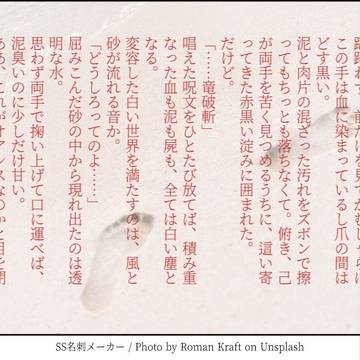 この手は血に染まっているし爪の間は
どす黒い。
泥と肉片の混ざった汚れをズボンで擦
ってもちっとも落ちなくて。俯き、己
が両手を苦く見つめるうちに、這い寄
ってきた赤黒い淀みに囲まれた。
だけど。
「……竜破斬」
唱えた呪文をひとたび放てば、積み重
なった血も泥も屍も、全ては白い塵と
なる。
変容した白い世界を満たすのは、風と
砂が流れる音か。
「どうしろってのよ……」
屈みこんだ砂の中から現れ出たのは透
明な水。
思わず両手で掬い上げて口に運べば、
泥臭いのに少しだけ甘い。
ああ、これがオアシスなのかと目を閉
SS名刺メーカー / Photo by Roman Kraft on Unsplash